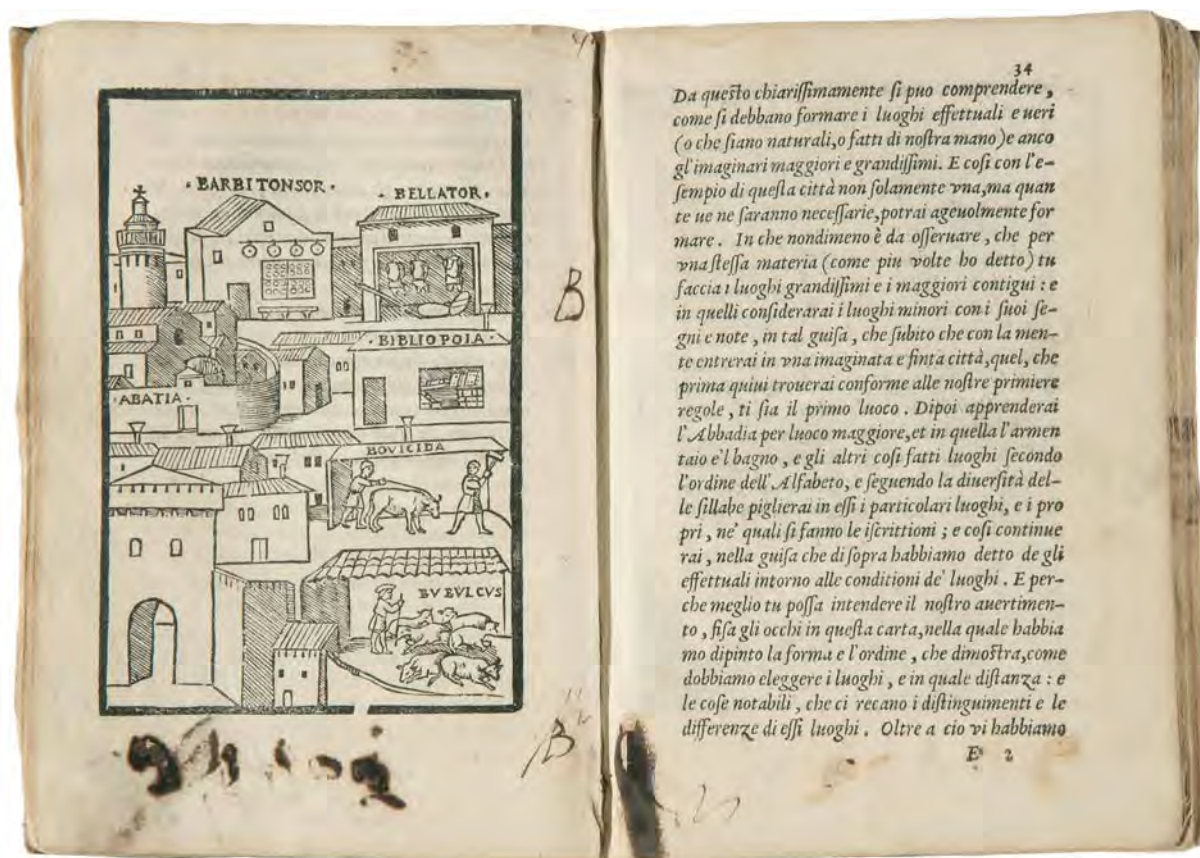 · BARBITONSOR ·
· BELLATOR ·
· BIBLIOPOLA ·
· ABATIA ·
BOVICIDA
BVBVLCVS
B
B
34
Da questo chiarissimamente si puo comprendere,
come si debbano formare i luoghi effettuali e ueri
(o che siano naturali, o fatti di nostra mano) e anco
gl'imaginari maggiori e grandissimi. E cosi con l'e-
sempio di questa città non solamente vna, ma quan
te ue ne saranno necessarie, potrai ageuolmente for
mare. In che nondimeno è da osseruare, che per
vna stessa materia (come piu volte ho detto) tu
faccia i luoghi grandissimi e i maggiori contigui: e
in quelli considerarai i luoghi minori con i suoi se-
gni e note, in tal guisa, che subito che con la men-
te entrerai in vna imaginata e finta città, quel, che
prima quiui trouerai conforme alle nostre primiere
regole, ti sia il primo luoco. Dipoi apprenderai
l'Abbadia per luoco maggiore, et in quella l'armen
taio e'l bagno, e gli altri cosi fatti luoghi secondo
l'ordine dell'Alfabeto, e seguendo la diuersità del-
le sillabe piglierai in essi i particolari luoghi, e i pro
pri, ne' quali si fanno le iscrittioni; e cosi continue
rai, nella guisa che di sopra habbiamo detto de gli
effettuali intorno alle conditioni de' luoghi. E per-
che meglio tu possa intendere il nostro auertimen-
to, fisa gli occhi in questa carta, nella quale habbia
mo dipinto la forma e l'ordine, che dimostra, come
dobbiamo eleggere i luoghi, e in quale distanza: e
le cose notabili, che ci recano i distinguimenti e le
differenze di essi luoghi. Oltre a cio vi habbiamo
E 2